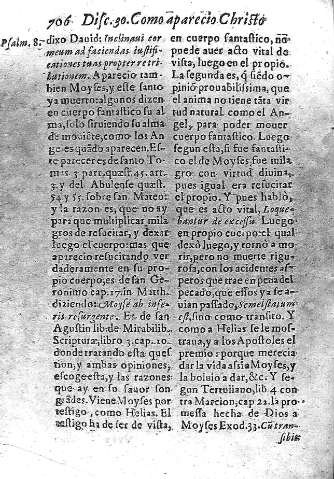 706 Disc. 30. Como aparecio Christo
Psalm. 8.
dixo Dauid: Inclinaui cor
meum ad faciendas iustifi
cationes tuas propter retri
butionem. Aparecio tam
bien Moyses, y este santo
ya muerto: algunos dizen
en cuerpo fantastico su al
ma, solo siruiendo su alma
de mouiente, como los An
geles quãdo aparecen. Es
te parecer es de santo To
mas 3. part. quæst. 45. art.
3. y del Abulense quæst.
54. y 55. sobre san Mateo:
y la razon es, que no ay
para que multiplicar mila
gros de resucitar, y dexar
luego el cuerpo: mas que
aparecio resucitando ver
daderamente en su pro
pio cuerpo, es de san Ge
ronimo cap. 17. in Matth.
diziendo: Moyse ab infe
ris resurgente. Et de san
Agustin lib. de Mirabilib.
Scripturæ, libro 3. cap. 10.
donde tratando esta ques
tion, y ambas opiniones,
escoge esta, y las razones
que ay en su fauor son
grãdes. Viene Moyses por
testigo, como Helias. El
testigo ha de ser de vista,
en cuerpo fantastico, no
puede auer acto vital de
vista, luego en el propio.
La segunda es, q siẽdo o
pinió probabilissima, que
el anima no tiene tãta vir
tud natural como el An
gel, para poder mouer
cuerpo fantastico. Luego
segun esta, si fue fantasti
co el de Moyses, fue mila
gro con virtud diuina,
pues igual era resucitar
el propio. Y pues hablo,
que es acto vital, Loque
bantur de excessu. Luego
en propio cuerpo: el qual
dexó luego, y torno a mo
rir, pero no muerte rigu
rosa, con los accidentes as
peros que trae en pena del
pecado, que essos ya se a
uian passado, Semel statum
est, sino como transito. Y
como a Helias se le mos
trauan, y a los Apostoles el
premio: porque merecia
dar la vida assi Moyses, y
la boluio a dar, &c. Y se
gun Tertuliano, lib. 4. con
tra Marcion, cap 22. la pro
messa hecha de Dios a
Moyses Exod. 33. Cũ tran-
sibit